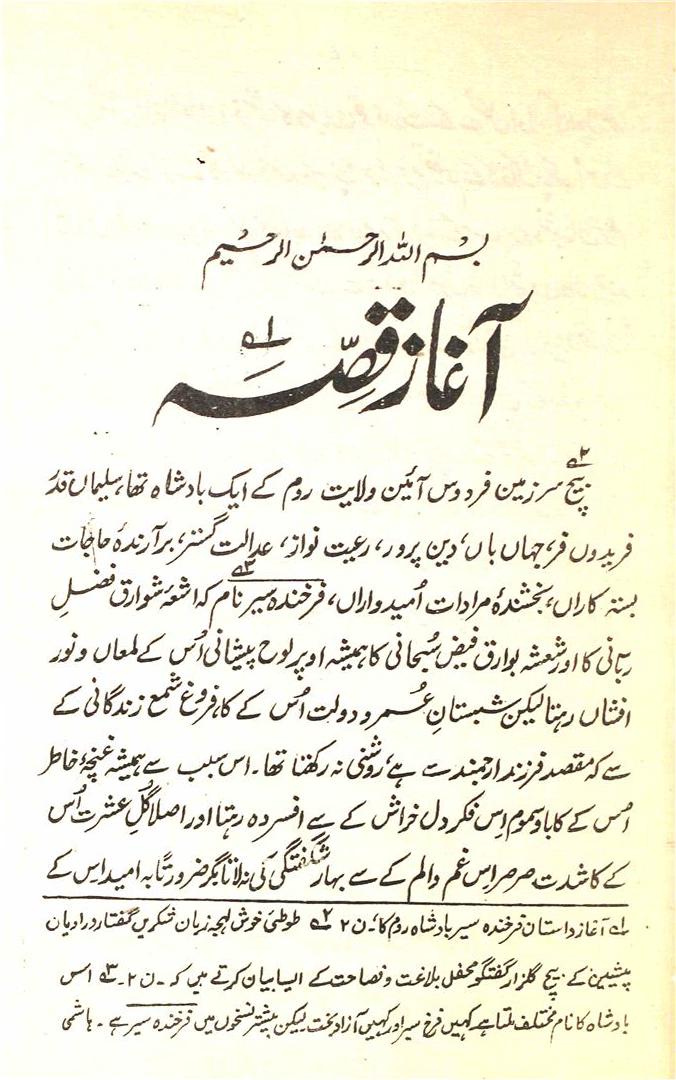 بسم اللہ الرحمٰن الرحیم
آغاز قصّہ ؂۱
؂۲ بیچ سرزمین فردوس آئین ولایت روم کے ایک بادشاہ تھا، سلیماں قدر
فریدوں فر، جہاں باں، دین پرور، رعیت نواز، عدالت گستر، برآرندۂ حاجات
بستہ کاراں، بخشندۂ مرادات اُمیدواراں، فرخندہ سیر ؂۳ نام کہ اشعۂ شوارق فضلِ
ربّانی کا اور شعشہ بوارق فیض سُبحانی کا ہمیشہ اوپر لوح پیشانی اُس کے لمعاں و نور
افشاں رہتا لیکن شبستانِ عُمر و دولت اُس کے کا، فروغ شمع زندگانی کے
سے کہ مقصد فرزند ارجمند سے ہے، روشنی نہ رکھتا تھا۔ اس سبب سے ہمیشہ غنچۂ خاطر
اُس کے کا بادِ سموم اِس فکر دل خراش کے سے افسردہ رہتا اور اصلا گُلِ عشرت اُس
کے کا شدت صرصر اِس غم و الم کے سے بہار شگفتگی کی نہ لاتا مگر ضرورتًا بہ امید اِس کے
؂۱ آغاز داستان فرخندہ سیر بادشاہ روم کا، ن ۲ ؂۲ طوطیٔ خوش لہجہ زبان شکریں گفتار در ادیان
پیشیں کے بیچ گلزار گفتگو محفل بلاغت و فصاحت کے ایسا بیان کرتے ہیں کہ۔ ن ۲۔ ؂۳ اس
بادشاہ کا نام مختلف ملتا ہے کہیں فرخ سیر اور کہیں آزاد بخت لیکن بیشتر نسخوں میں فرخندہ سیر ہے۔ ہاشمی